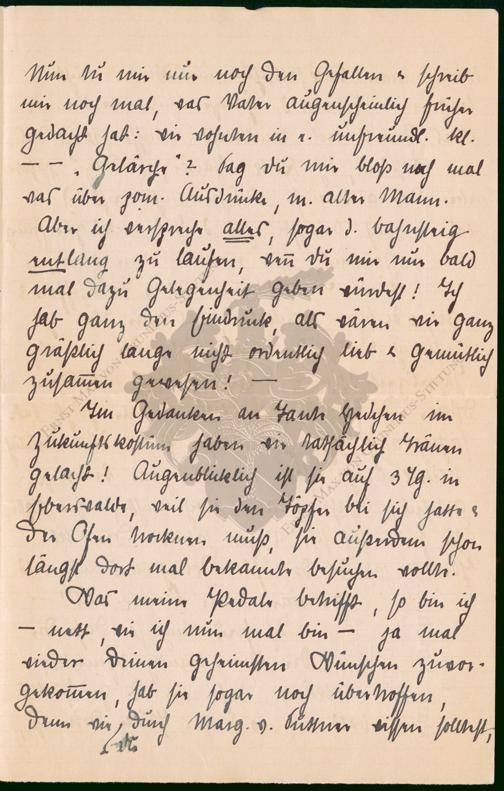 Nun tu mir nur noch den Gefallen & schreib
mir noch mal, was Vater augenscheinlich früher
gedacht hat: wir wohnten in e. unfreundl. kl.
— — „Gelärche“? Sag du mir bloß noch mal
was über zom. Ausdrücke, m. alter Mann.
Aber ich verspreche alles, sogar d. bahnsteig
entlang zu laufen, wenn du mir nur bald
mal dazu Gelegenheit geben würdest! Ich
hab ganz den Eindruck, als wären wir ganz
gräßlich lange nicht ordentlich lieb & gemütlich
zusamen gewesen! —
Im Gedanken an Tante Hedchen im
Zukunftskostüm haben wir tatsächlich Tränen
gelacht! Augenblicklich ist sie auf 3 Tg. in
Eberswalde, weil sie den Töpfer bei sich hatte &
der Ofen trocknen muß, sie außerdem schon
längst dort mal bekannte besuchen wollte.
Was meine Pedale betrifft, so bin ich
— nett, wie ich nun mal bin — ja mal
wieder deinen geheimsten Wünschen zuvor-
gekomen, hab sie sogar noch übertroffen,
denn wie du durch Marg. v. Puttner wissen solltest,